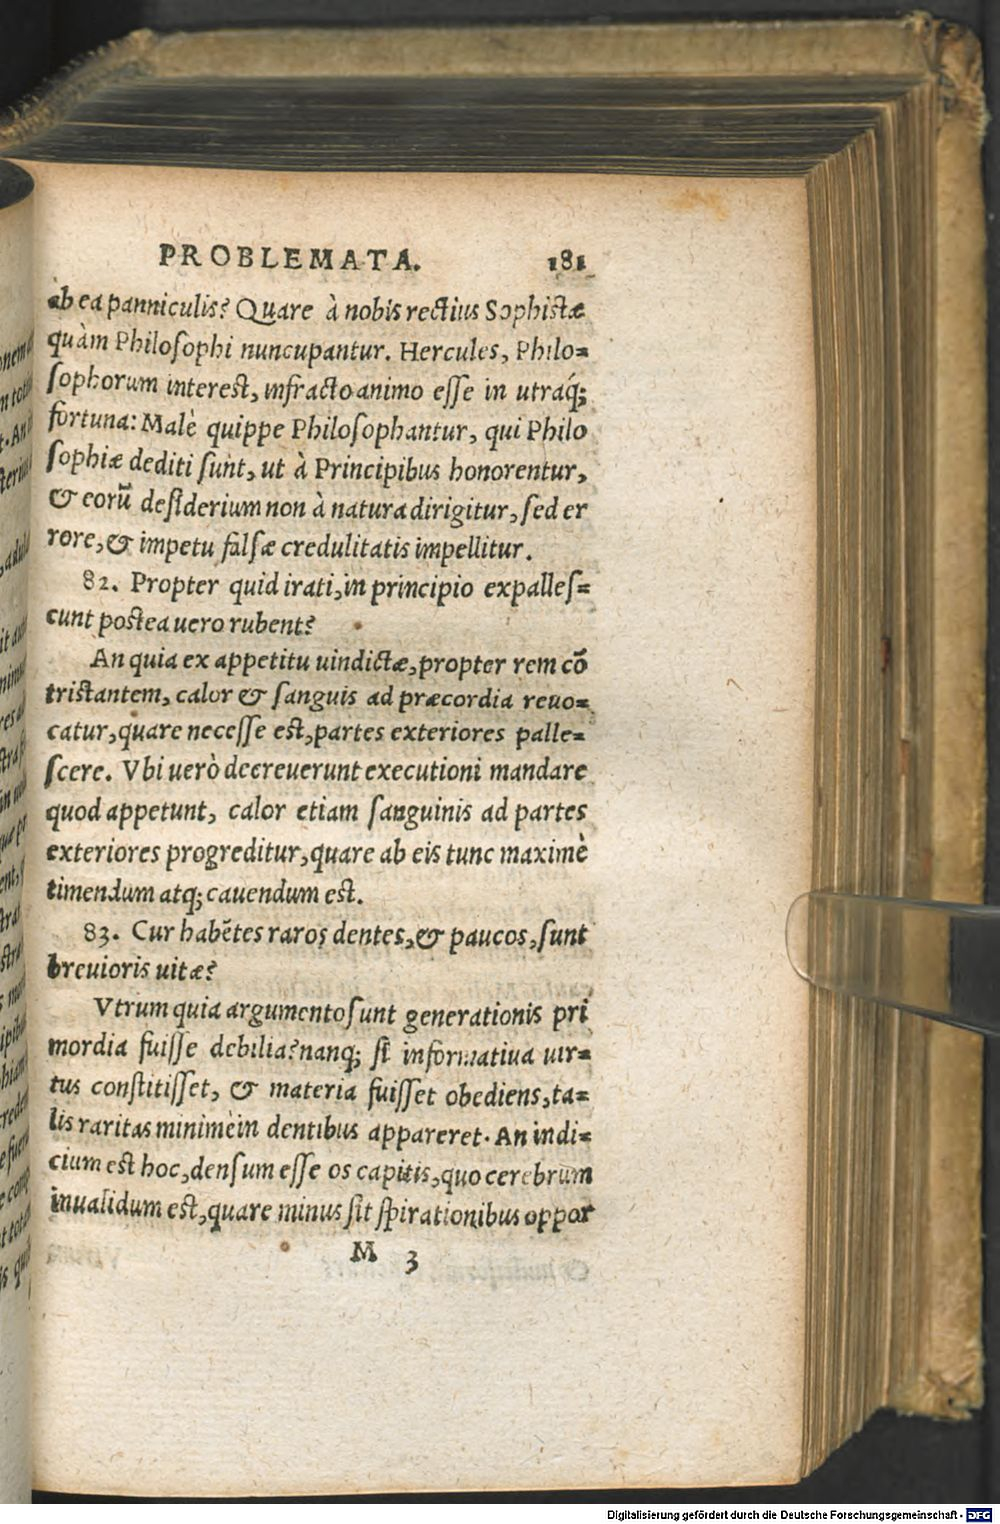 PROBLEMATA. 181
ab ea panniculis? Quare à nobis rectius Sophistæ
quàm Philosophi nuncupantur. Hercules, Philo=
sophorum interest, infracto animo esse in utraq́;
fortuna: Malè quippe Philosophantur, qui Philo
sophiæ dediti sunt, ut à Principibus honorentur,
& eorū desiderium non à natura dirigitur, sed er
rore, & impetu falsæ credulitatis impellitur.
82. Propter quid irati, in principio expalles=
cunt postea uero rubent?
An quia ex appetitu uindictæ, propter rem cō
tristantem, calor & sanguis ad præcordia reuo=
catur, quare necesse est, partes exteriores palle=
scere. Vbi uerò decreuerunt executioni mandare
quod appetunt, calor etiam sanguinis ad partes
exteriores progreditur, quare ab eis tunc maximè
timendum atq; cauendum est.
83. Cur habētes raros dentes, & paucos, sunt
breuioris uitæ?
Vtrum quia argumento sunt generationis pri
mordia fuisse debilia? nanq; si informatiua uir=
tus constitisset, & materia fuisset obediens, ta=
lis raritas minimè in dentibus appareret. An indi=
cium est hoc, densum esse os capitis, quo cerebrum
inualidum est, quare minus sit spirationibus oppor
M 3
Digitalisierung gefördert durch die Deutsche Forschungsgemeinschaft - DFG